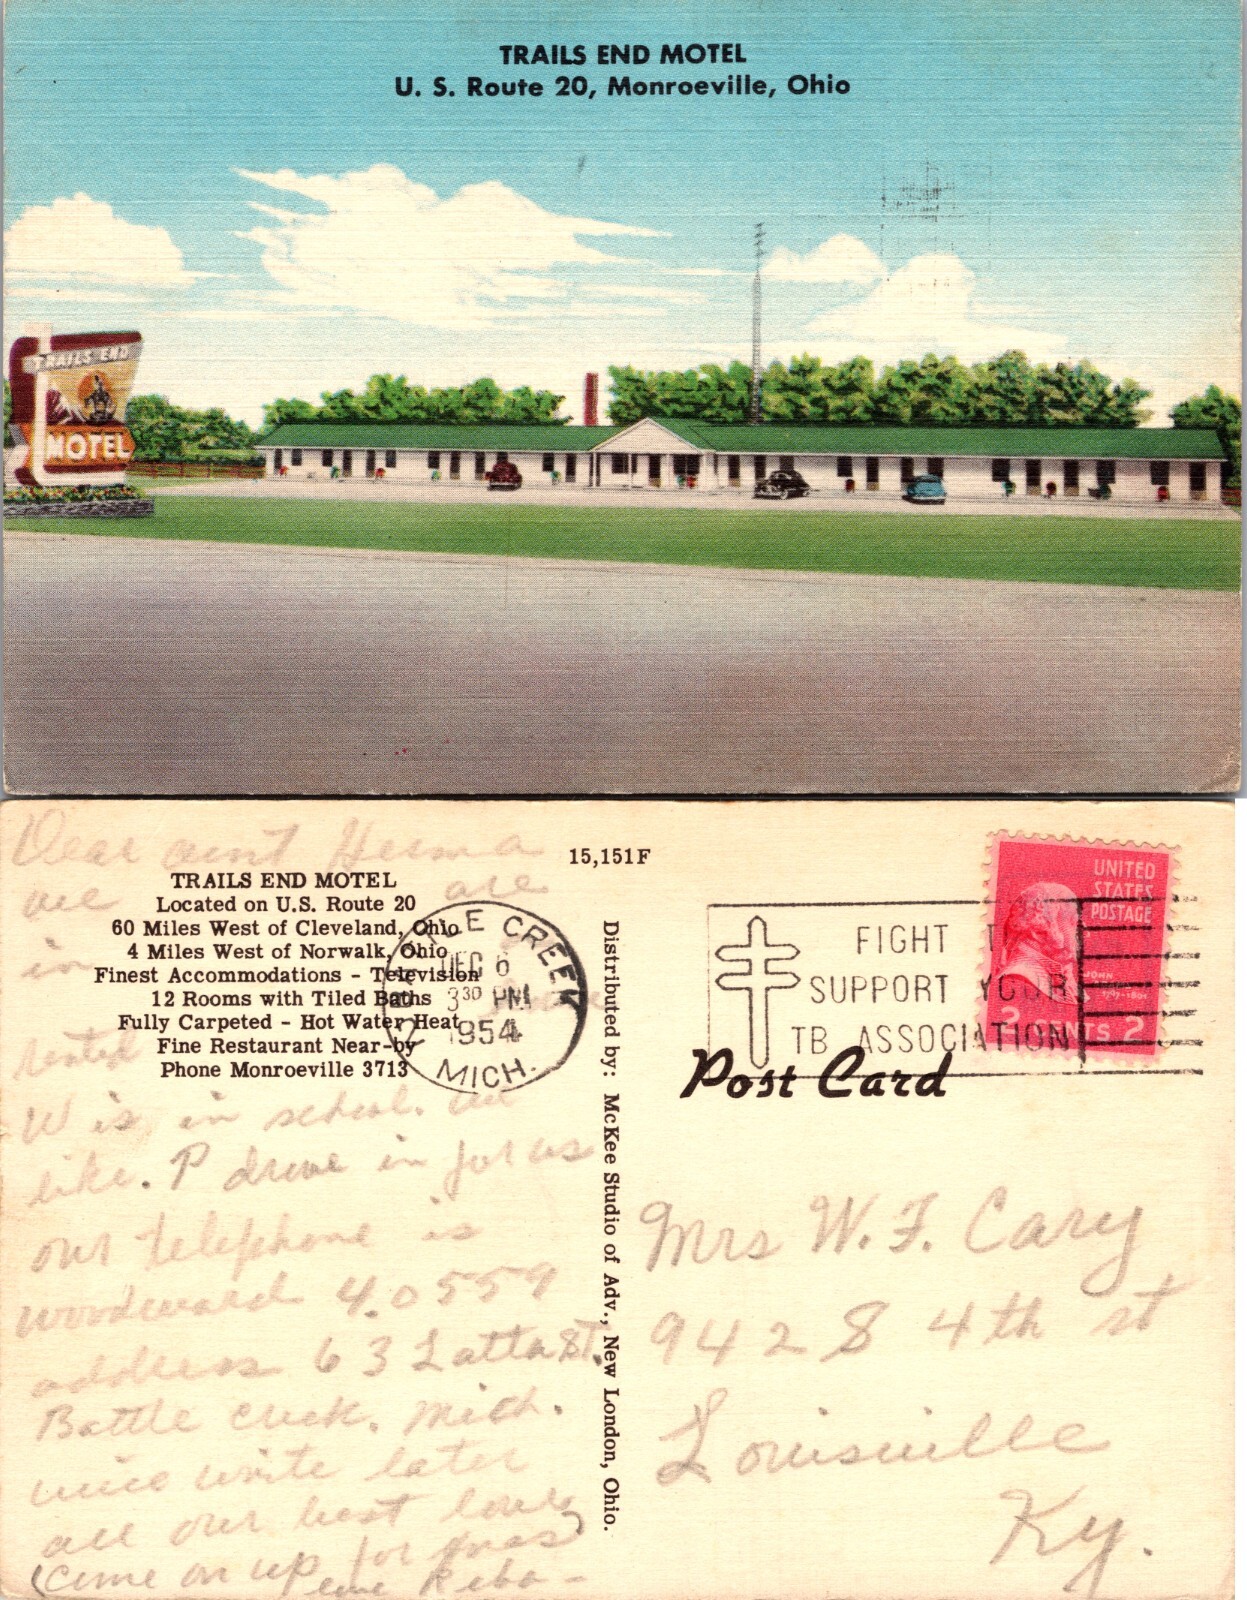 TRAILS END MOTEL
U. S. Route 20, Monroeville, Ohio
TRAILS END
MOTEL
Dear aunt Herma
we are
in
rented
W is in school. we
like. P drive in for us
our telephone is
woodward 4.0559
address 63 Latta St.
Battle creek. Mich.
write later
all our best love
(come on up for xmas)
Reba -
15,151F
TRAILS END MOTEL
Located on U.S. Route 20
60 Miles West of Cleveland, Ohio
4 Miles West of Norwalk, Ohio
Finest Accommodations - Television
12 Rooms with Tiled Baths
Fully Carpeted - Hot Water Heat
Fine Restaurant Near-by
Phone Monroeville 3713
BATTLE CREEK
DEC 6
3 30 PM
1954
MICH.
Distributed by: McKee Studio of Adv., New London, Ohio.
FIGHT T
SUPPORT YOUR
TB ASSOCIATION
UNITED
STATES
POSTAGE
JOHN
2 CENTS 2
Post Card
Mrs W. F. Cary
942 S 4th st
Louisville
Ky.